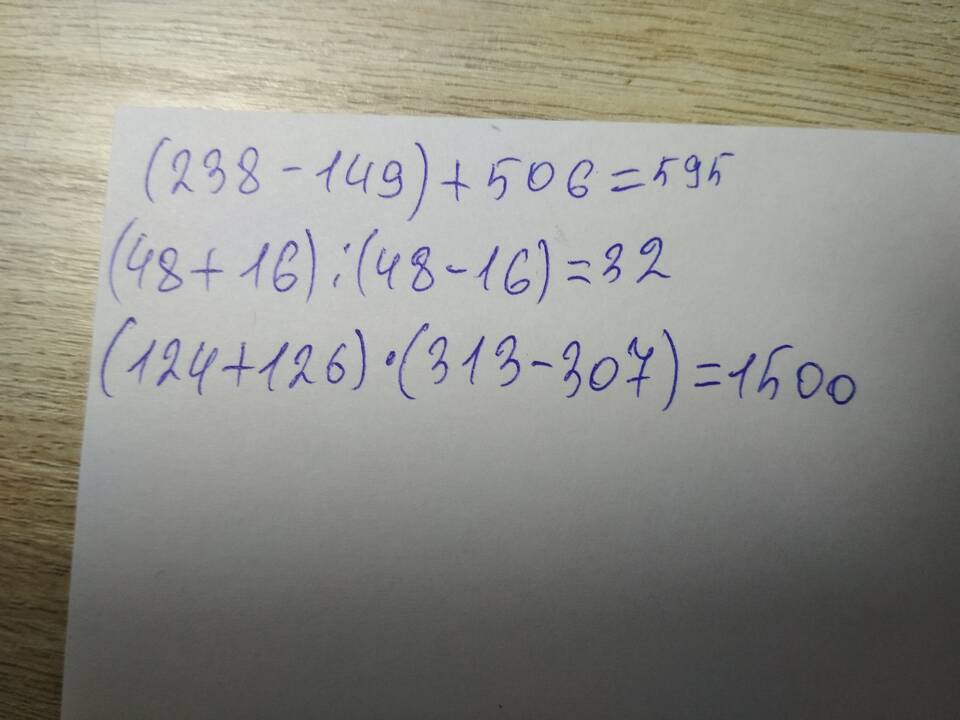 (238-149)+506=595
(48+16):(48-16)=32
(124+126)·(313-307)=1500